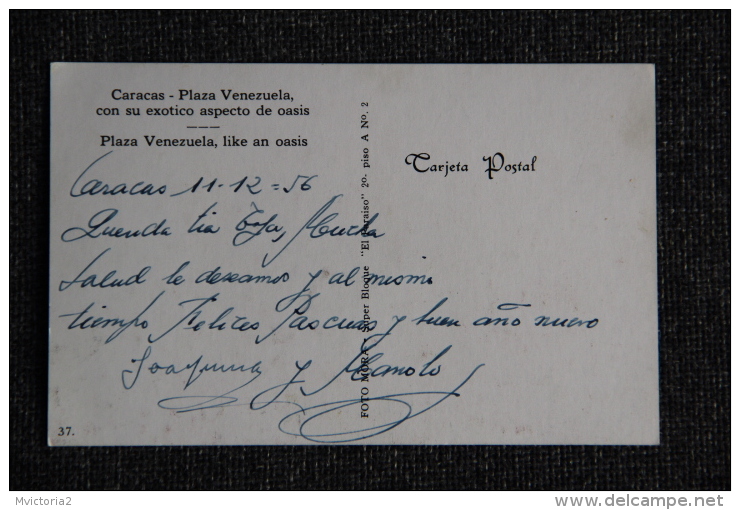 Caracas - Plaza Venezuela,
con su exotico aspecto de oasis
Plaza Venezuela, like an oasis
Tarjeta Postal
FOTO MORA - Super Bloque "El Paraiso" 2o- piso A No. 2
Caracas 11-12=56
Querida tia Mucha
Salud le deseamos y al mismo
tiempo Felices Pascuas y buen año nuevo
Joaquina y Manolo
37.
Mvictoria2
www.delcampe.net